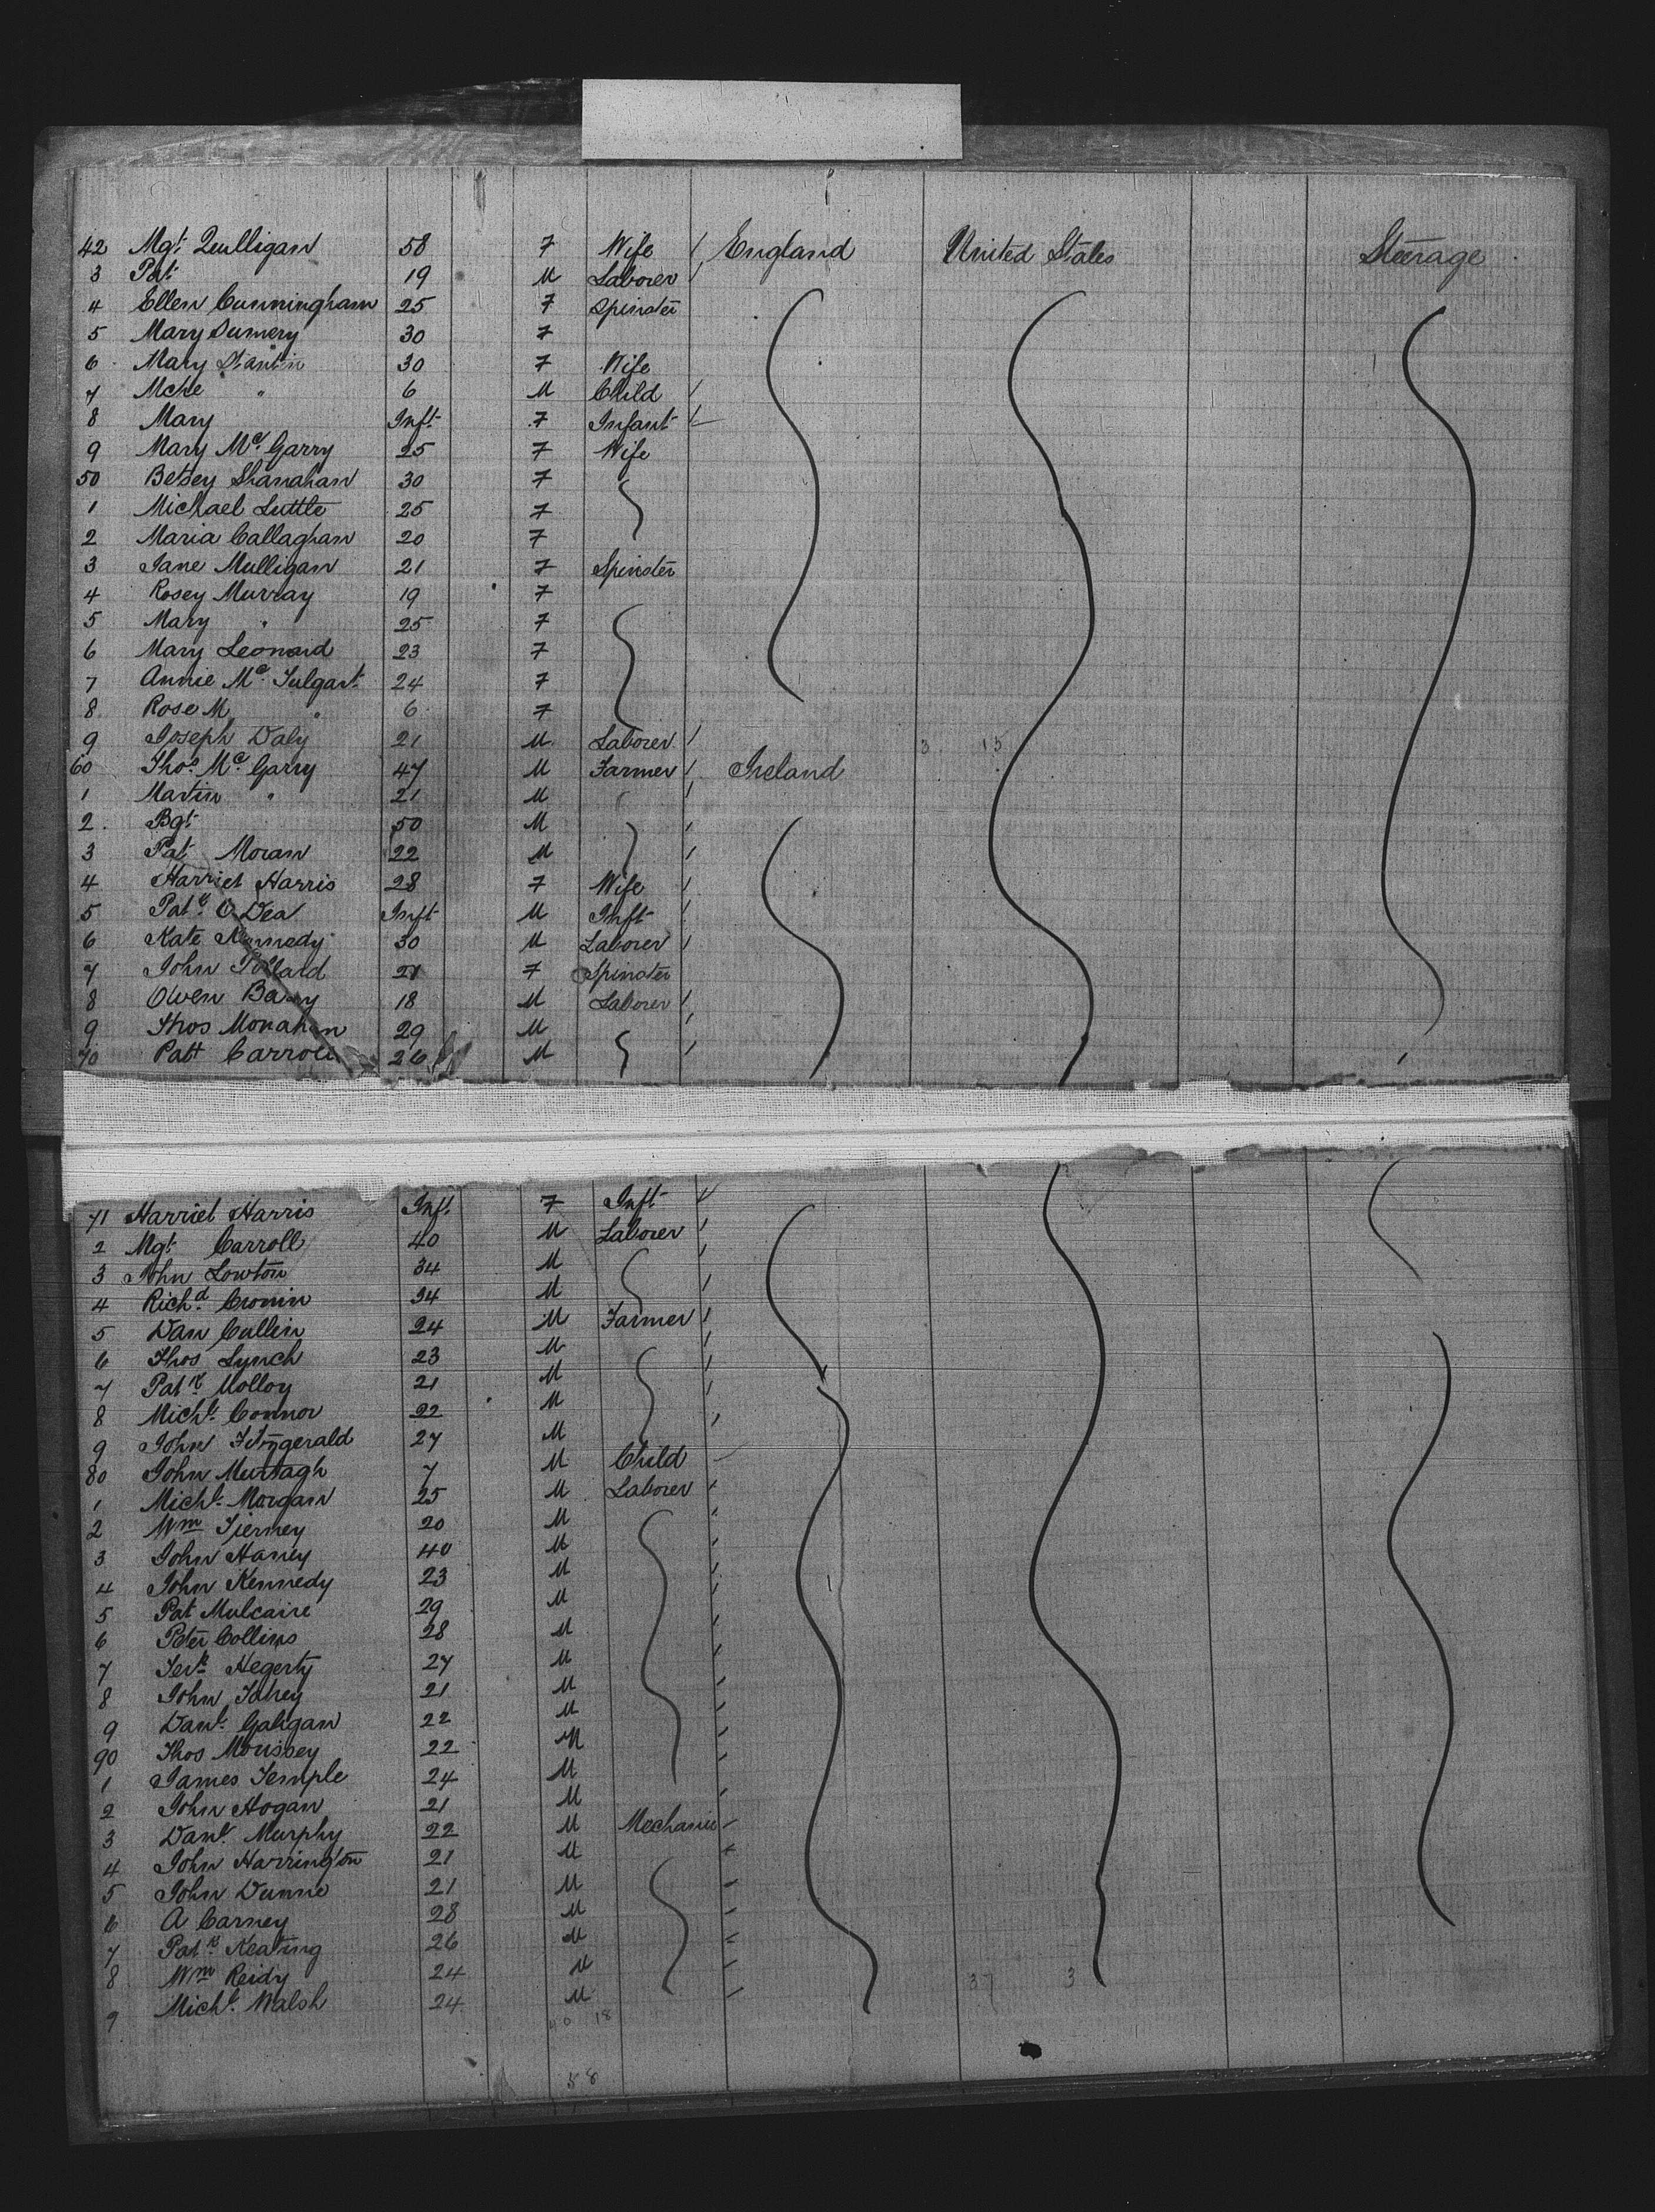 42 Mgt Quilligan 58 F Wife England United States Steerage
3 Pat 19 M Laborer
4 Ellen Cunningham 25 F Spinster
5 Mary 30 F
6 Mary Stantin 30 F Wife
7 Mche " 6 M Child
8 Mary Inft F Infant
9 Mary Mc Garry 25 F Wife
50 Betsey Shanahan 30 F
1 Michael Luttle 25 F
2 Maria Callaghan 20 F
3 Jane Mulligan 21 F Spinster
4 Rosey Murray 19 F
5 Mary " 25 F
6 Mary Leonard 23 F
7 Annie Mc 24 F
8 Rose M " 6 F
9 Joseph Daly 21 M Laborer 3 15
60 Thos Mc Garry 47 M Farmer Ireland
1 Martin " 21 M
2 Bgt 50 M
3 Pat Moran 22 M
4 Harriet Harris 28 F Wife
5 Patk O Dea Inft M Inft
6 Kate Kennedy 30 M Laborer
7 John 21 F Spinster
8 Owen Barry 18 M Laborer
9 Thos Monahan 29 M
70 Patt Carroll 26 M
71 Harriet Harris Inft F Inft
2 Mgt Carroll 40 M Laborer
3 John Lowton 34 M
4 Richd Cronin 34 M
5 Dan Cullin 24 M Farmer
6 Thos Lynch 23 M
7 Patk Molloy 21 M
8 Michl Connor 22 M
9 John Fitzgerald 27 M
80 John Murtagh 7 M Child
1 Michl Morgan 25 M Laborer
2 Wm Tierney 20 M
3 John Haney 40 M
4 John Kennedy 23 M
5 Pat Mulcaire 29 M
6 Peter Collins 28 M
7 Hegerty 27 M
8 John Fahey 21 M
9 Danl Galigan 22 M
90 Thos Moussey 22 M
1 James Temple 24 M
2 John Hogan 21 M
3 Danl Murphy 22 M Mechanic
4 John Harrington 21 M
5 John Dunne 21 M
6 A Carney 28 M
7 Patk Keating 26 M
8 Wm Reidy 24 M 37 3
9 Michl Walsh 24 M
40 18
58